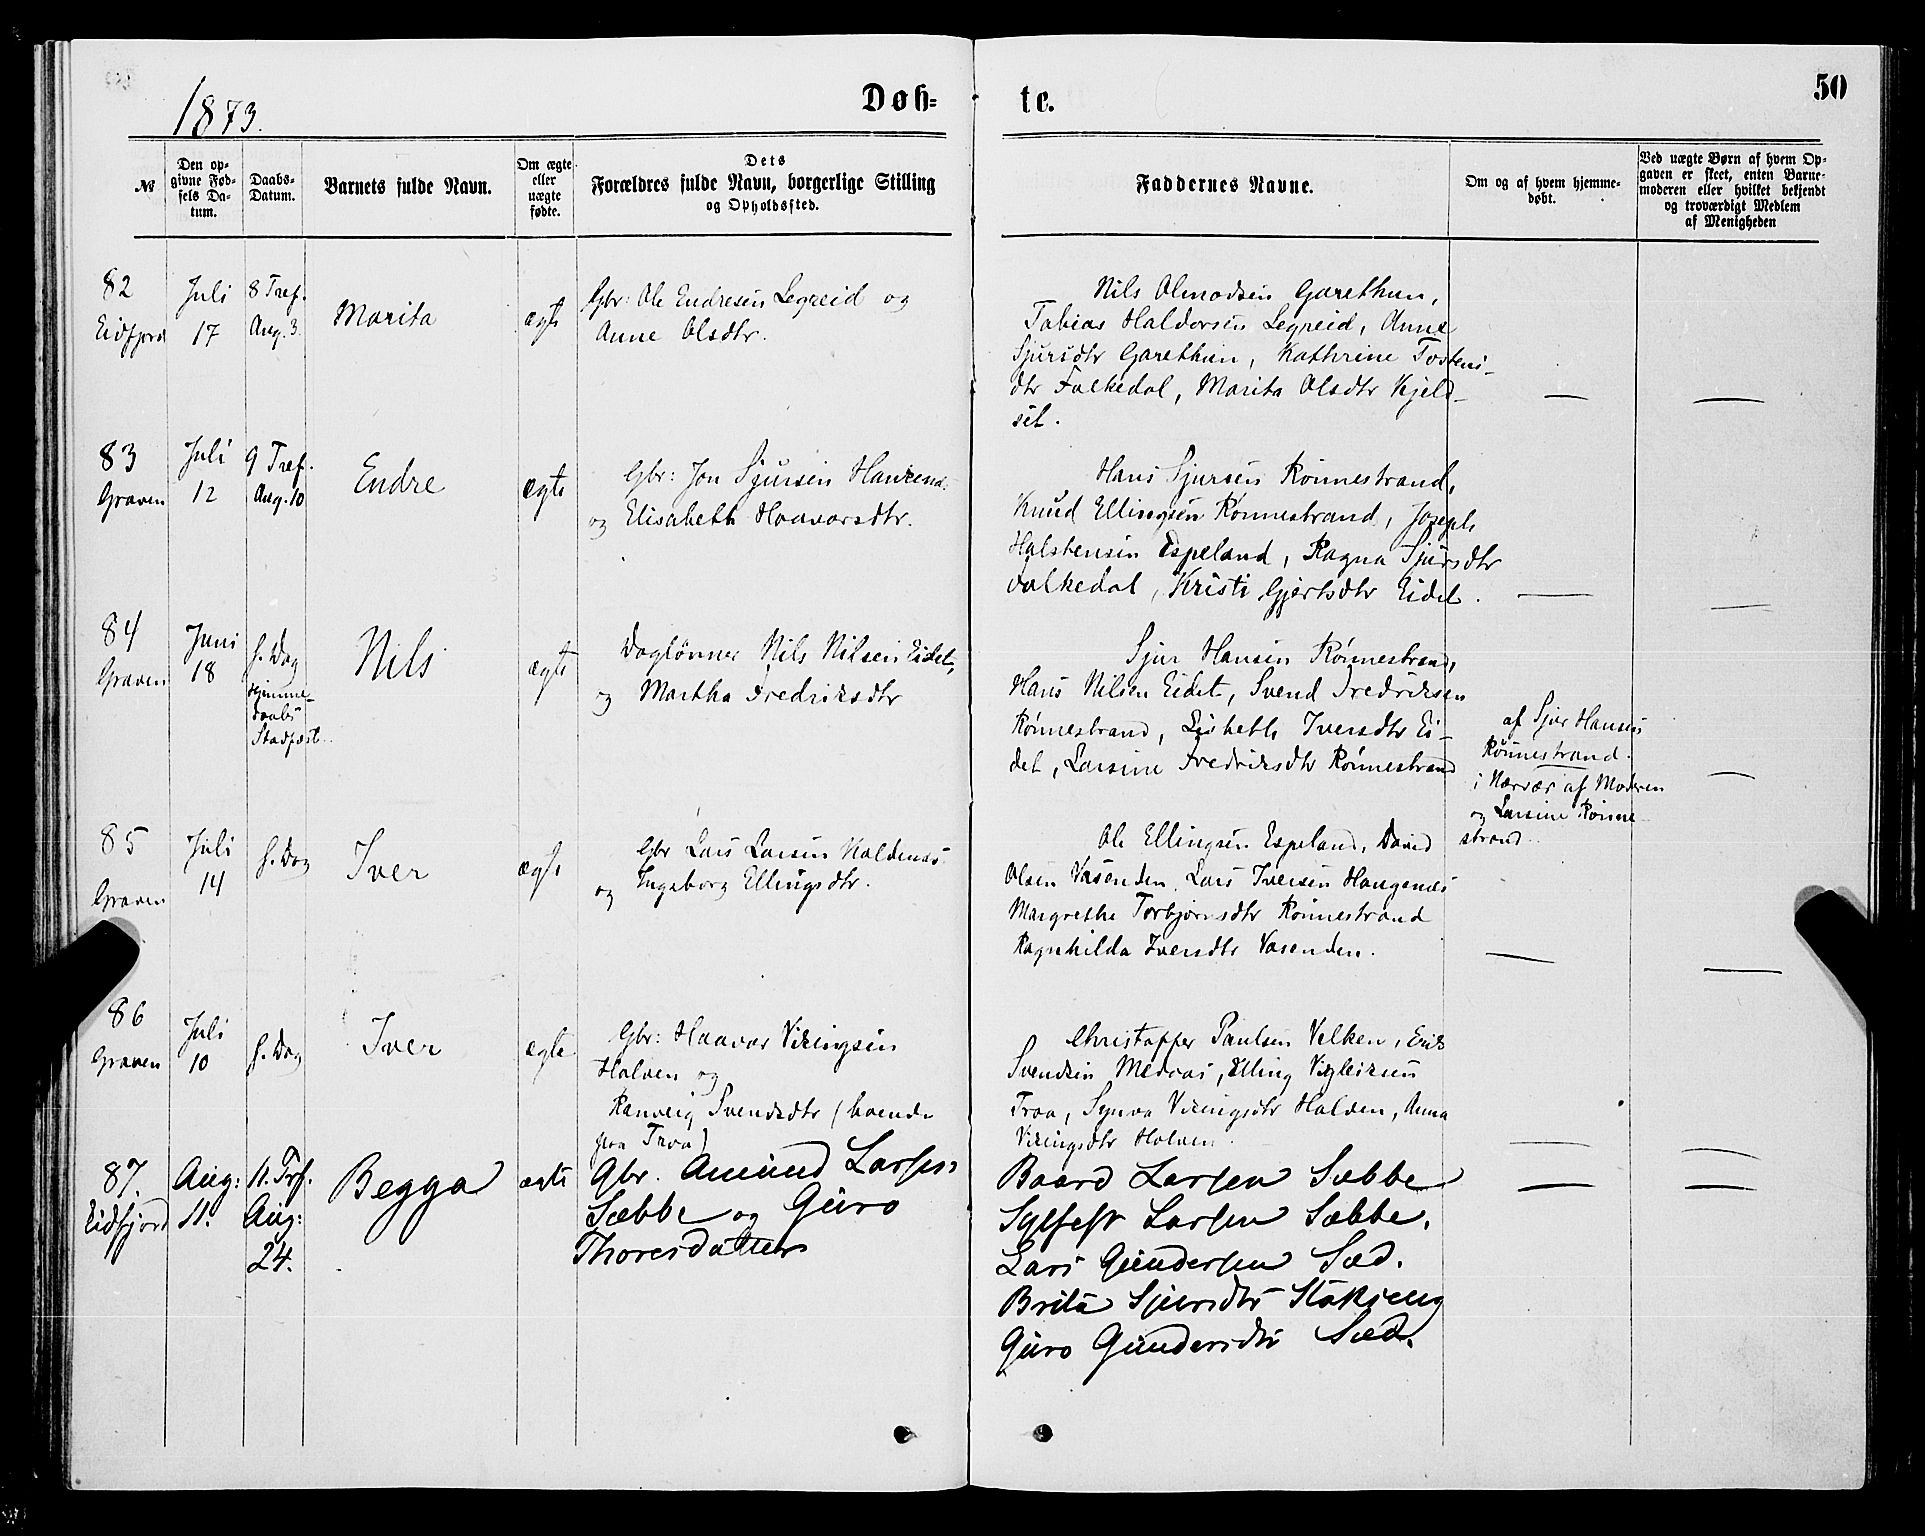 1873.
Døb=
te.
50
№
Den op=
givne Fød=
sels Da=
tum.
Daabs=
Datum.
Barnets fulde Navn.
Om ægte
eller
uægte
fødte.
Dets
Forældres fulde Navn, borgerlige Stilling
og Opholdssted.
Faddernes Navne.
Om og af hvem hjemme=
døbt.
Ved uægte Børn af hvem Op=
gaven er skeet, enten Barne=
moderen eller hvilket bekjendt
og troværdigt Medlem
af Menigheden
82
Eidfjord
Juli
17
8 Tref.
Aug. 3.
Marita
ægte
Gbr: Ole Endresen Legreid og
Anne Olsdtr.
Nils Olmodsen Garethun,
Tobias Haldorsen Legreid, Anne
Sjursdtr Garethun, Kathrine Tostens-
dtr Falkedal, Marita Olsdtr Kjeld-
set.
—
—
83
Graven
Juli
12
9 Tref.
Aug. 10
Endre
ægte
Gbr: Jon Sjursen
og Elisabeth Haavarsdtr.
Hans Sjursen Rønnestrand,
Knud Ellingsen Rønnestrand, Joseph
Halstensen Espeland, Ragna Sjursdtr
Valkedal, Kristi Gjertsdtr Eidet.
—
—
84
Graven
Juni
18
s. Dag
Hjemme-
daabs
Stadfæst.
Nils
ægte
Daglønner Nils Nilsen Eidet,
og Martha Fredriksdtr
Sjur Hansen Rønnestrand,
Hans Nilsen Eidet, Svend Fredriksen
Rønnestrand, Lisbeth Iversdtr Ei-
det, Larsine Fredriksdtr Rønnestrand
af Sjur Hansen
Rønnestrand.
i Nærvær af Moderen
og Larsine Rønne-
strand.
—
85
Graven
Juli
14
s. Dag
Iver
ægte
Gbr Lars Larsen Haldenæs
og Ingeborg Ellingsdtr.
Ole Ellingsen Espeland, David
Olsen Vasenden, Lars Iversen Haugenæs
Margrethe Torbjørnsdtr Rønnestrand
Ragnhilda Iversdtr Vasenden.
—
—
86
Graven
Juli
10
s. Dag
Iver
ægte
Gbr: Haavar Vikingsen
Halven og
Ranveig Svendsdtr (boende
paa Traa)
Christoffer Paulsen Velken, Erik
Svendsen Medaas, Elling Vigleiksen
Traa, Synva Vikingsdtr Halven, Anna
Vikingsdtr Halven.
—
—
87.
Eidfjord
Aug:
11.
11. Trf.
Aug:
24.
Begga
ægte
Gbr. Amund Larsen
Sæbbe og Guro
Thoresdatter
Baard Larsen Sæbbe
Sylfest Larsen Sæbbe.
Lars Gundersen Sæd.
Brita Sjursdtr Støkjeng
Guro Gundersdtr Sæd.
—
—